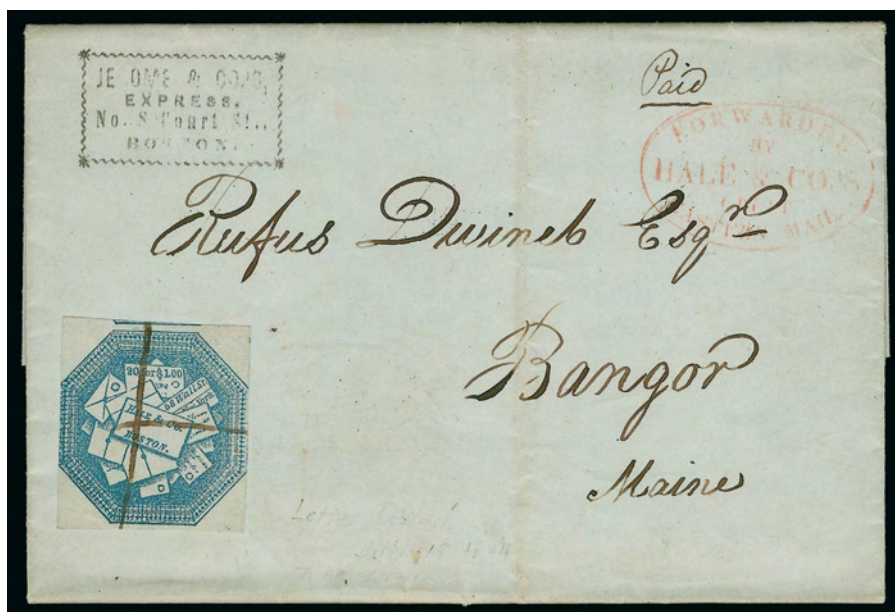 JE OME & CO'S,
EXPRESS.
No. 8 Court St.,
BOSTON.
Paid
FORWARDED
BY
HALE & CO.'S
EASTERN MAIL
Rufus Dwinel Esqre
Bangor
Maine
20 for $1.00
58 Wall St.
HALE & Co.
BOSTON.